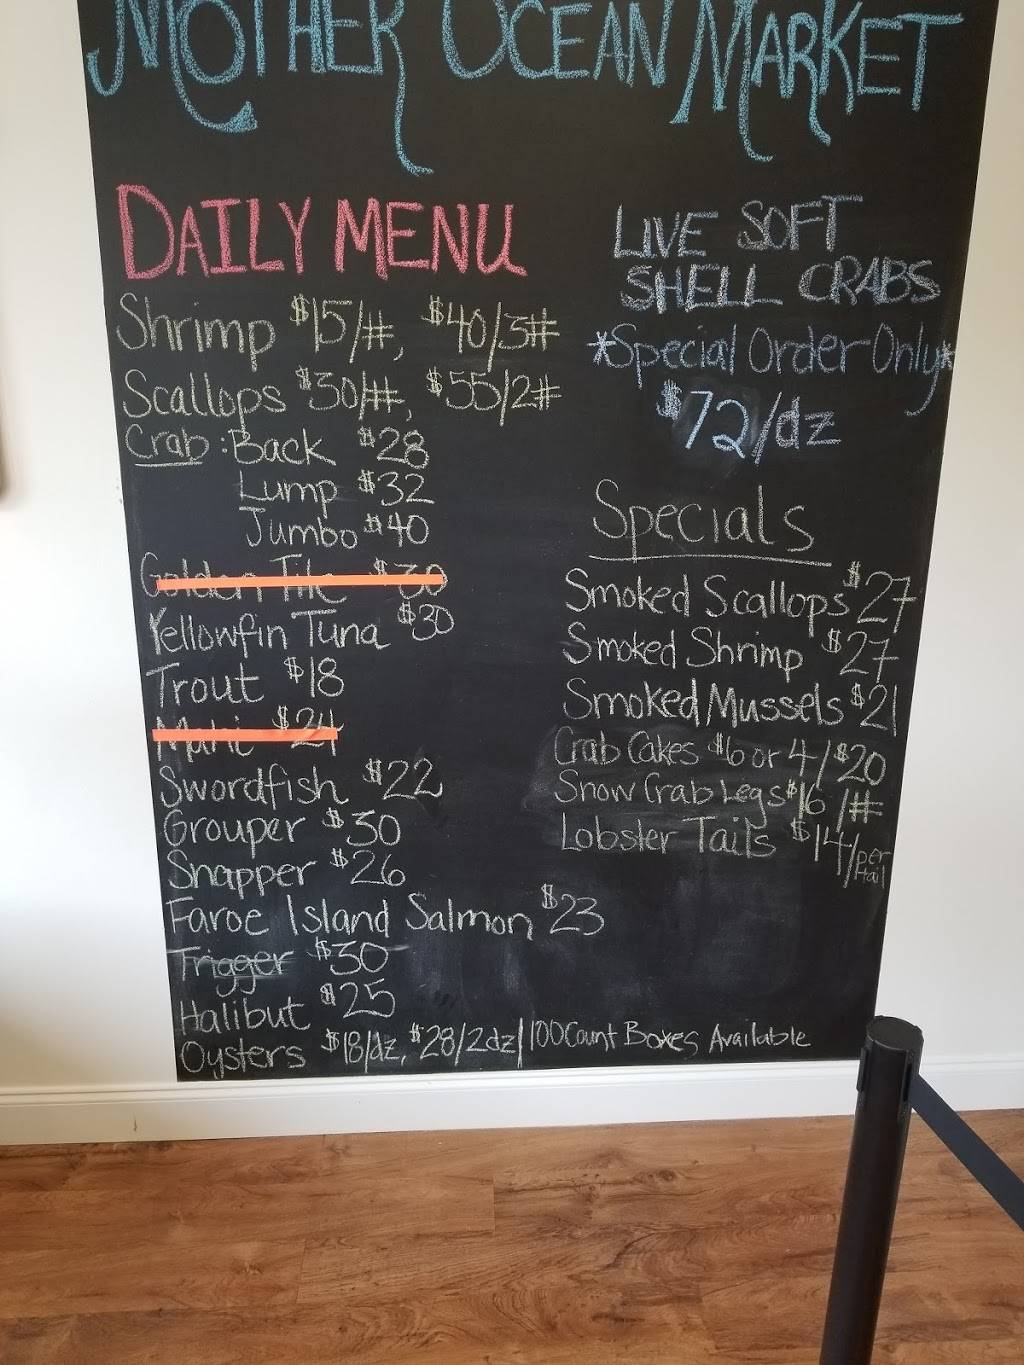 MOTHER OCEAN MARKET
DAILY MENU
Shrimp $15/#, $40/3#
Scallops $30/#, $55/2#
Crab: Back $28
Lump $32
Jumbo $40
Golden Tile $30
Yellowfin Tuna $30
Trout $18
Mahi $24
Swordfish $22
Grouper $30
Snapper $26
Faroe Island Salmon $23
Trigger $30
Halibut $25
Oysters $18/dz, $28/2dz/100 Count Boxes Available
LIVE SOFT
SHELL CRABS
*Special Order Only*
$72/dz
Specials
Smoked Scallops $27
Smoked Shrimp $27
Smoked Mussels $21
Crab Cakes $6 or 4/$20
Snow Crab Legs $16/#
Lobster Tails $14/per tail